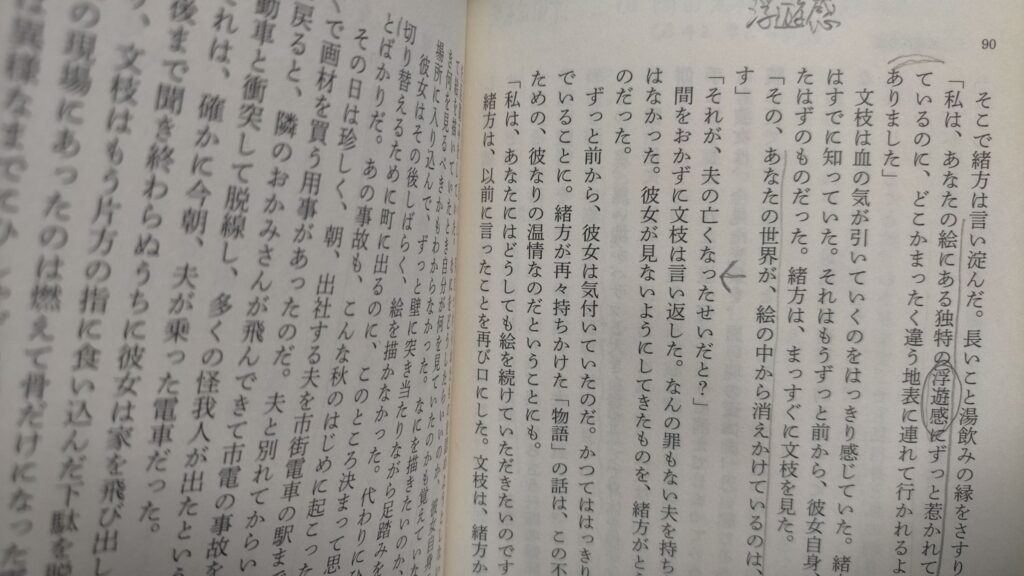 浮遊感
90
そこで緒方は言い淀んだ。長いこと湯飲みの縁をさすり
「私は、あなたの絵にある独特の浮遊感にずっと惹かれて
ているのに、どこかまったく違う地表に連れて行かれるよ
ありました」
文枝は血の気が引いていくのをはっきり感じていた。緒
はすでに知っていた。それはもうずっと前から、彼女自身
たはずのものだった。緒方は、まっすぐに文枝を見た。
「その、あなたの世界が、絵の中から消えかけているのは、
す」
「それが、夫の亡くなったせいだと?」
間をおかずに文枝は言い返した。なんの罪もない夫を持ち
はなかった。彼女が見ないようにしてきたものを、緒方がと
のだった。
ずっと前から、彼女は気付いていたのだ。かつてははっきり
でいることに。緒方が再々持ちかけた「物語」の話は、この不
ための、彼なりの温情なのだということにも。
「私は、あなたにはどうしても絵を続けていただきたいのです
緒方は、以前に言ったことを再び口にした。文枝は、緒方か
場所に入り込んで、ずっと壁に突き当たりながら足踏みを
彼女はその後しばらく、絵を描かなかった。代わりにひ
切り替えるために町に出るのに、このところ決まって思
とばかりだ。あの事故も、こんな秋のはじめに起こった
その日は珍しく、朝、出社する夫を市街電車の駅ま
で画材を買う用事があったのだ。夫と別れてからい
戻ると、隣のおかみさんが飛んできて市電の事故を
動車と衝突して脱線し、多くの怪我人が出たという
れは、確かに今朝、夫が乗った電車だった。
後まで聞き終わらぬうちに彼女は家を飛び出し
、文枝はもう片方の指に食い込んだ下駄を
の現場にあったのは燃えて骨だけになった
は異様なまでに